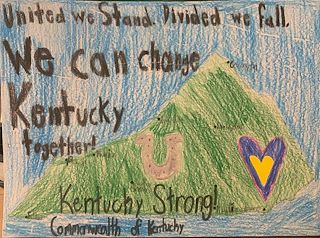 United we Stand. Divided we fall.
We can change
Kentucky
together!
U
Kentuchy Strong!
Commonwealth of Kentuchy